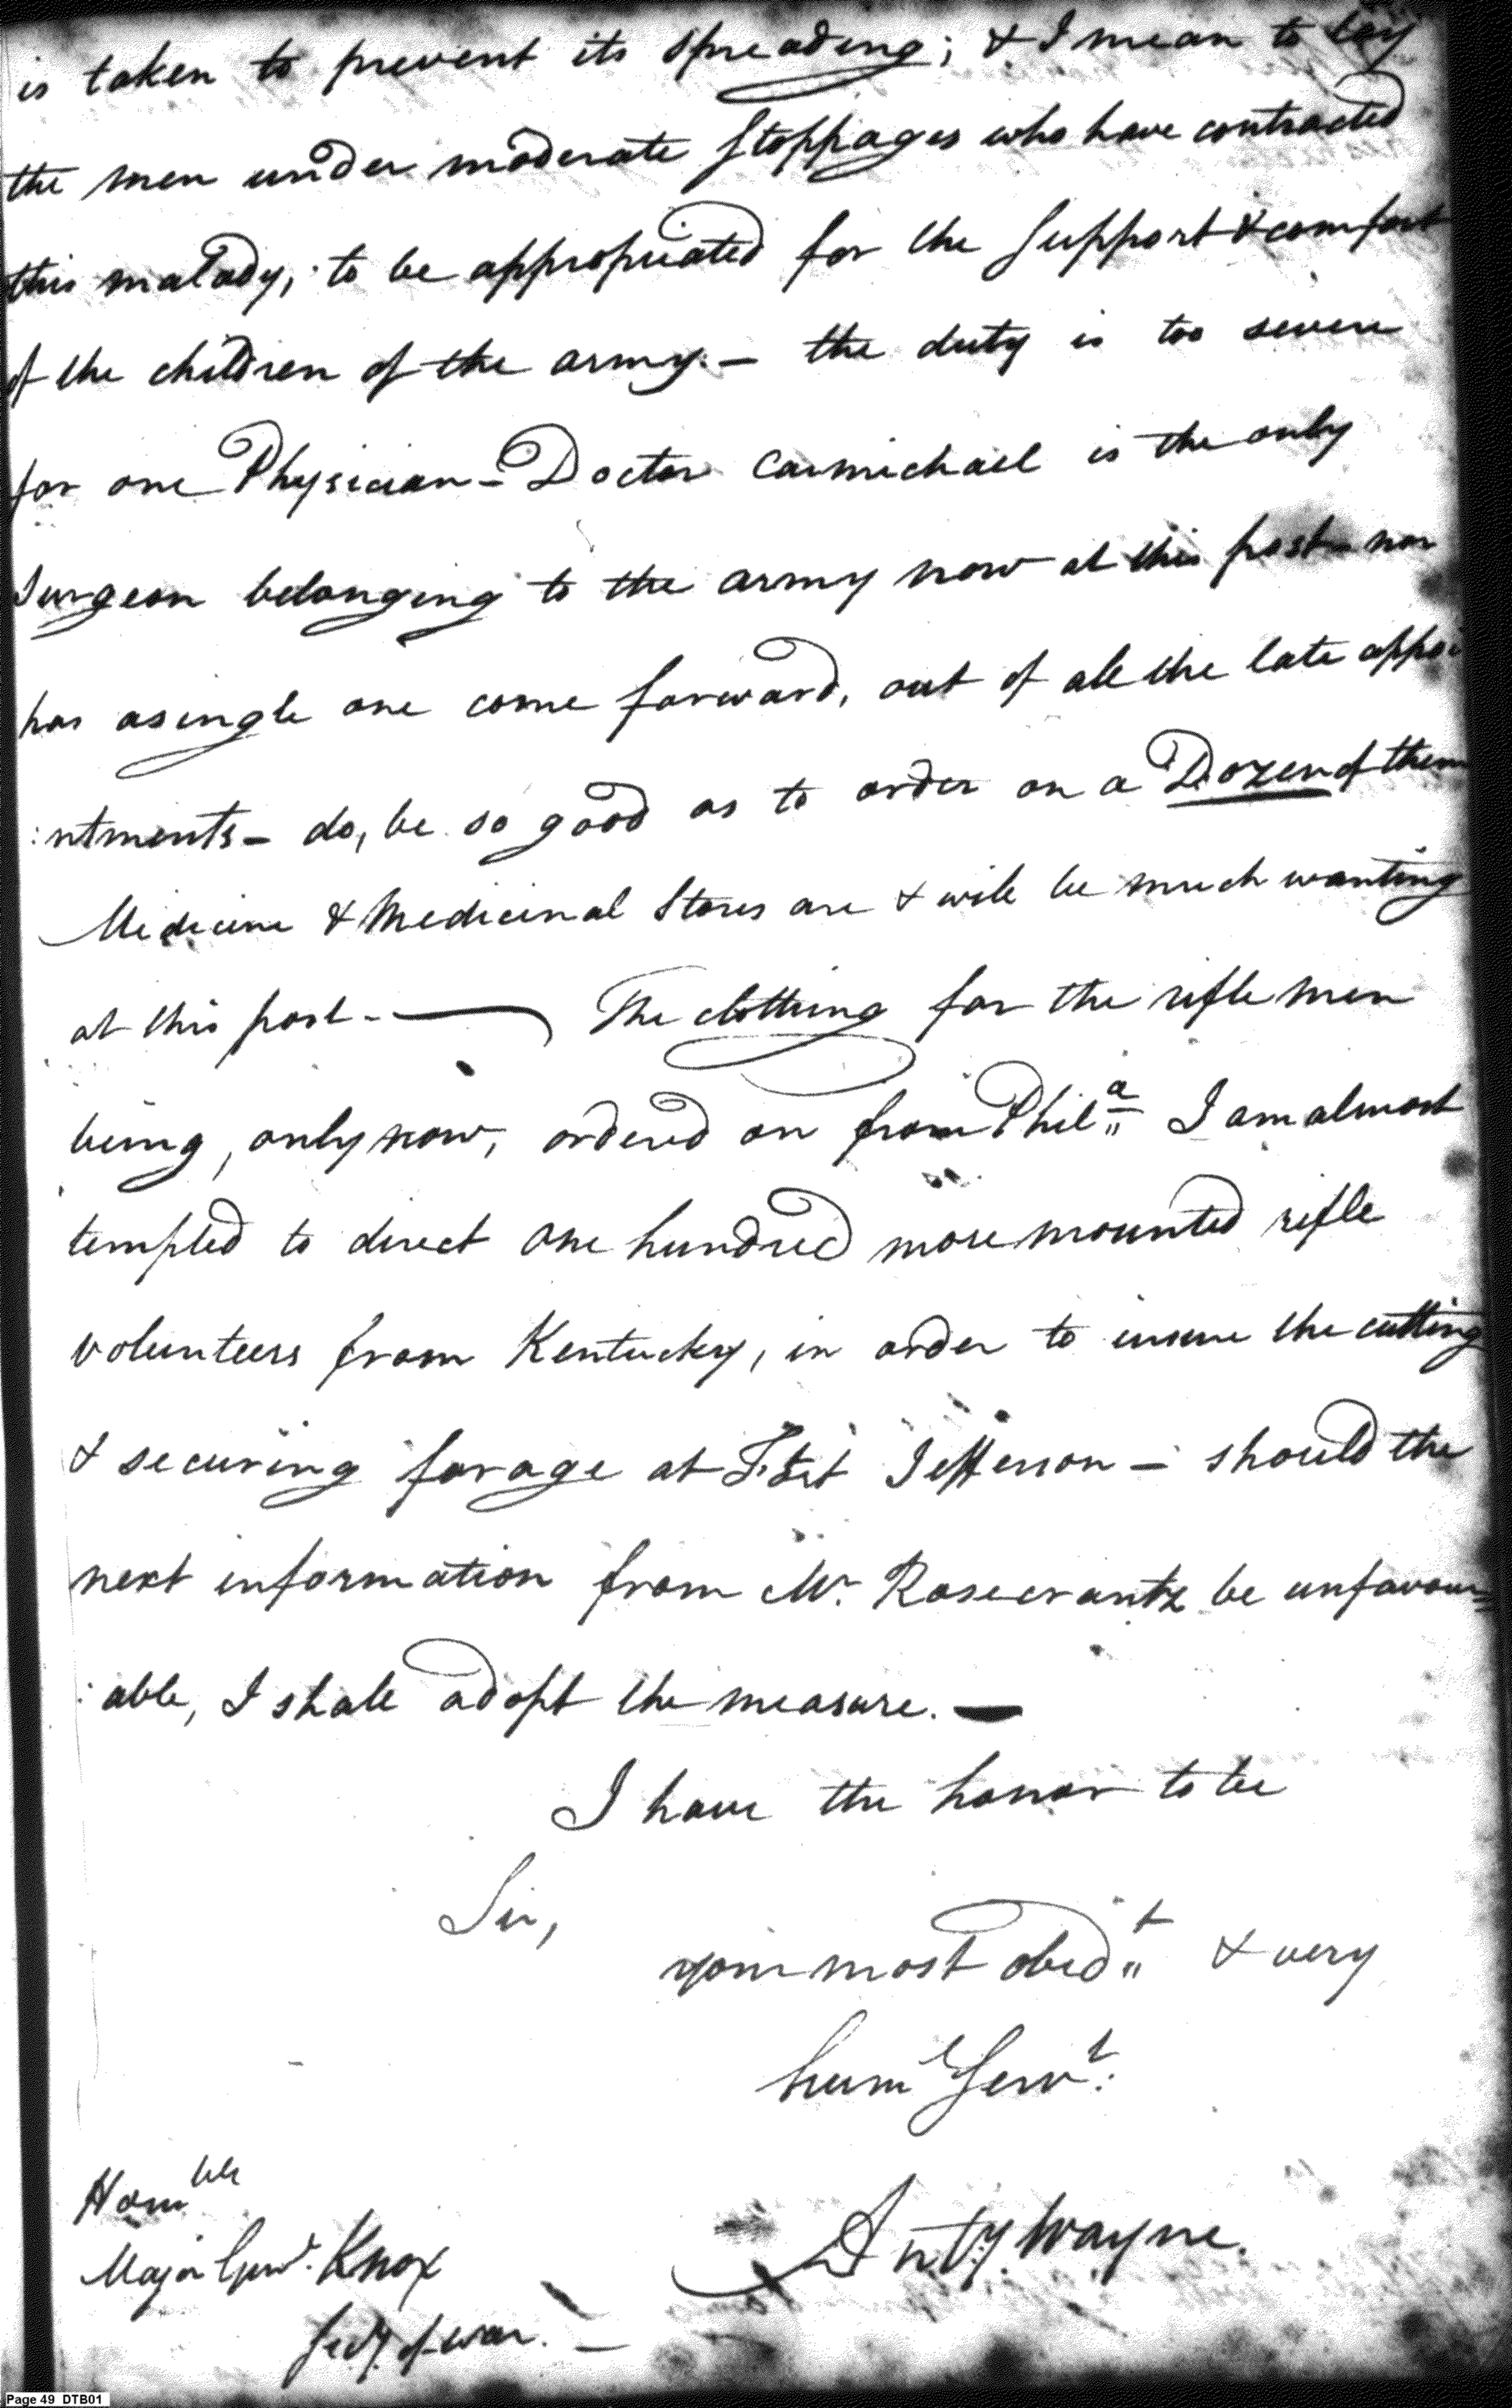 is taken to prevent its spreading; & I mean to lay
the men under moderate Stoppages who have contracted
this malady, to be appropriated for the Support & comfort
of the children of the army. – the duty is too severe
for one Physician – Doctor Carmichael is the only
Surgeon belonging to the army now at this post – nor
has a single one come forward, out of all the late appoi
:ntments – do, be so good as to order on a Dozen of them
Medicine & Medicinal Stores are & will be much wanting
at this post. — The clothing for the rifle men
being, only now, ordered on from Phil.a I am almost
tempted to direct one hundred more mounted rifle
volunteers from Kentucky, in order to insure the cutting
& securing forage at Fort Jefferson – should the
next information from Mr. Rosecrantz be unfavour=
:able, I shall adopt the measure. —
I have the honor to be
Sir,
your most obed.t & very
huml Servt:
Anty. Wayne.
Honble
Major Genl. Knox
Secy. of war. –
Page 49 DTB01